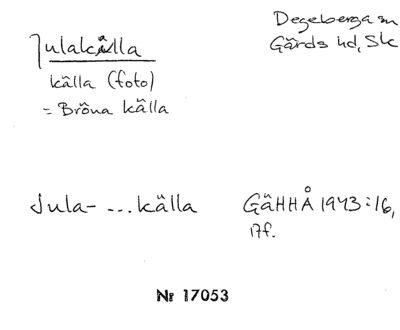 Julakälla
källa (foto)
= Bröna källa
Degeberga sn
Gärds hd, Sk
Jula- ... källa
GäHHÅ 1973:16,
17f.
№ 17053